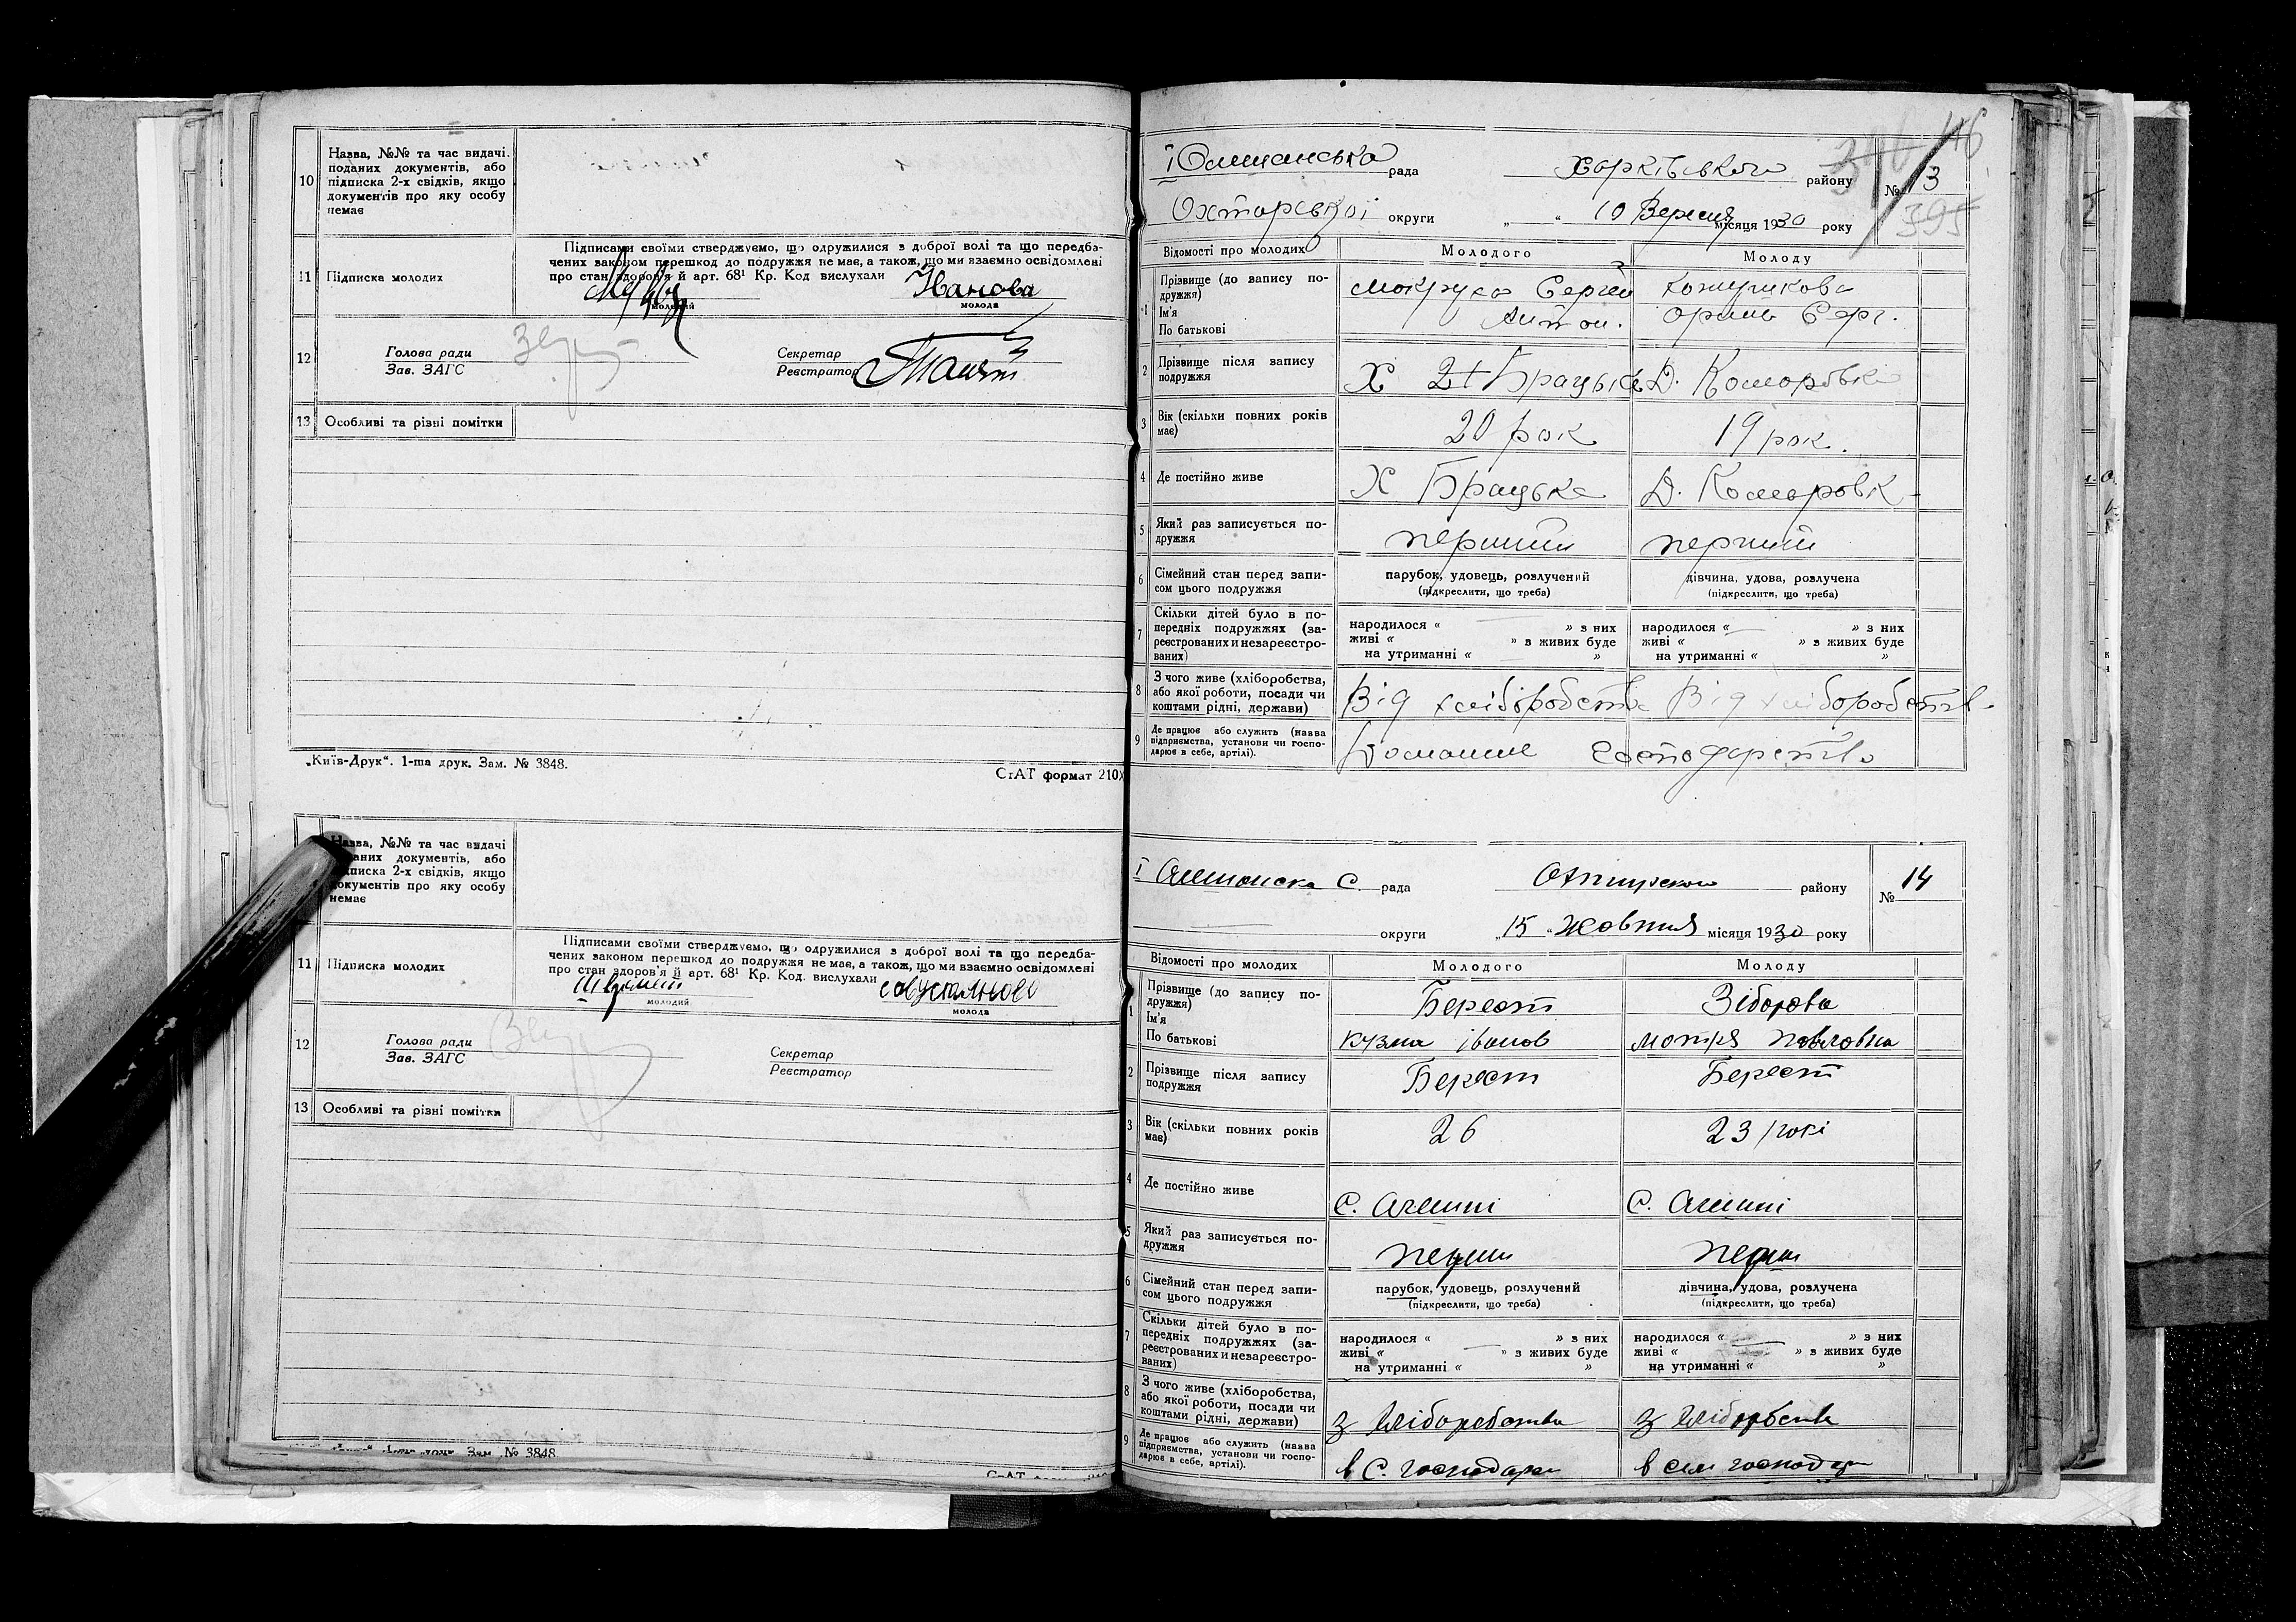 10
Назва, №№ та час видачі
поданих документів, або
підписка 2-х свідків, якщо
документів про яку особу
немає
11 Підписка молодих
Підписами своїми стверджуємо, що одружилися з доброї волі та що передба-
чених законом перешкод до подружжя не має, а також, що ми взаємно освідомлені
про стан здоров'я й арт. 68¹ Кр. Код вислухали
молодий
молода
12 Голова ради
Зав. ЗАГС
Секретар
Реєстратор
13 Особливі та різні помітки
„Київ-Друк“. 1-ша друк. Зам. № 3848.
СтАТ формат 210
Назва, №№ та час видачі
поданих документів, або
підписка 2-х свідків, якщо
документів про яку особу
немає
11 Підписка молодих
Підписами своїми стверджуємо, що одружилися з доброї волі та що передба-
чених законом перешкод до подружжя не має, а також, що ми взаємно освідомлені
про стан здоров'я й арт. 68¹ Кр. Код. вислухали
молодий
молода
12 Голова ради
Зав. ЗАГС
Секретар
Реєстратор
13 Особливі та різні помітки
Зам. № 3848
рада Харківського району № 13
395
округи 10 Вересня місяця 1930 року
Відомості про молодих Молодого Молоду
1 Прізвище (до запису по-
дружжя)
Ім'я
По батькові
Мокруса Сергей
Антон.
Орина Серг.
2 Прізвище після запису
подружжя
Х Брацьке Д. Коморовка
3 Вік (скільки повних років
має)
20 рок 19 рок.
4 Де постійно живе Х Брацьке Д. Комаровк
5 Який раз записується по-
дружжя
перший перший
6 Сімейний стан перед запи-
сом цього подружжя
парубок, удовець, розлучений
(підкреслити, що треба)
дівчина, удова, розлучена
(підкреслити, що треба)
7 Скільки дітей було в по-
передніх подружжях (за-
реєстрованих и незареєстро-
ваних)
народилося « » з них
живі « » з живих буде
на утриманні « »
народилося « » з них
живі « » з живих буде
на утриманні « »
8 З чого живе (хліборобства,
або якої роботи, посади чи
коштами рідні, держави)
Від хліборобства Від хліборобств
9 Де працює або служить (назва
підприємства, установи чи госпо-
дарює в себе, артілі).
Домашнє господарство
І рада району № 14
округи „15“ Жовтня місяця 1930 року
Відомості про молодих Молодого Молоду
1 Прізвище (до запису по-
дружжя)
Ім'я
По батькові
Берест Зіборова
Кузма Іванов Мотря Павловна
2 Прізвище після запису
подружжя
Берест Берест
3 Вік (скільки повних років
має)
26 23 рокі
4 Де постійно живе
С. Олешні С. Олешні
5 Який раз записується по-
дружжя
перши перши
6 Сімейний стан перед запи-
сом цього подружжя
парубок, удовець, розлучений
(підкреслити, що треба)
дівчина, удова, розлучена
(підкреслити, що треба)
7 Скільки дітей було в по-
передніх подружжях (за-
реєстрованих и незареєстро-
ваних)
народилося « » з них
живі « » з живих буде
на утриманні « »
народилося « » з них
живі « » з живих буде
на утриманні « »
8 З чого живе (хліборобства,
або якої роботи, посади чи
коштами рідні, держави)
з хліборобства з хліборобств
9 Де працює або служить (назва
підприємства, установи чи госпо-
дарює в себе, артілі).
в С. господар в сам господар